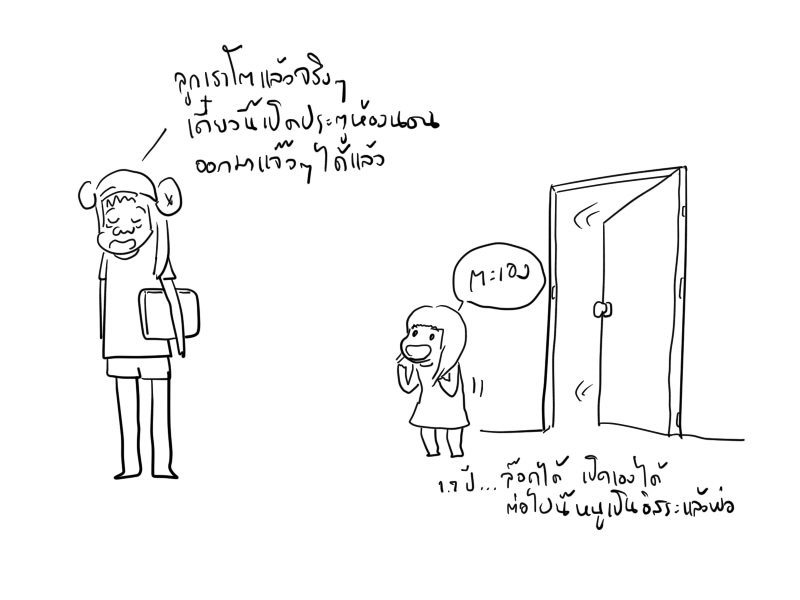 ลูกเราโตแล้วจริงๆ
เดี๋ยวนี้เปิดประตูห้องนอน
ออกมาแจ๊วๆได้แล้ว
ตะเอง
1.7 ปี... ล๊อคได้ เปิดเองได้
ต่อไปนี้หนูเป็นอิสระแล้วพ่อ